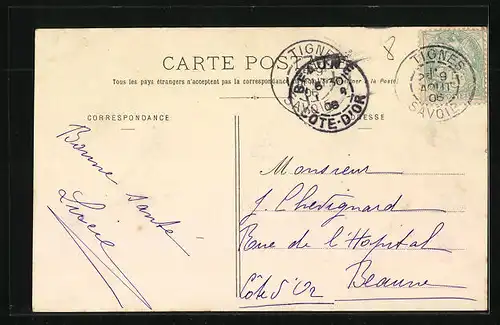 CARTE POSTALE
Tous les pays étrangers n'acceptent pas la correspondance
à la Poste.
CORRESPONDANCE
ADRESSE
TIGNES
9
AOUT
06
SAVOIE
TIGNES
9
SAVOIE
BEAUNE
06
COTE-D'OR
8
Bonne Santé
Monsieur
J. Chevignard
Rue de l'Hopital
Beaune
Côte d'Or